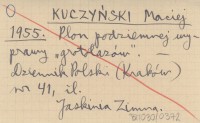 KUCZYŃSKI Maciej
1955. Plon podziemnej wy-
prawy "grotołazów".
Dziennik Polski (Kraków)
nr 41, il.
Jaskinia Zimna.